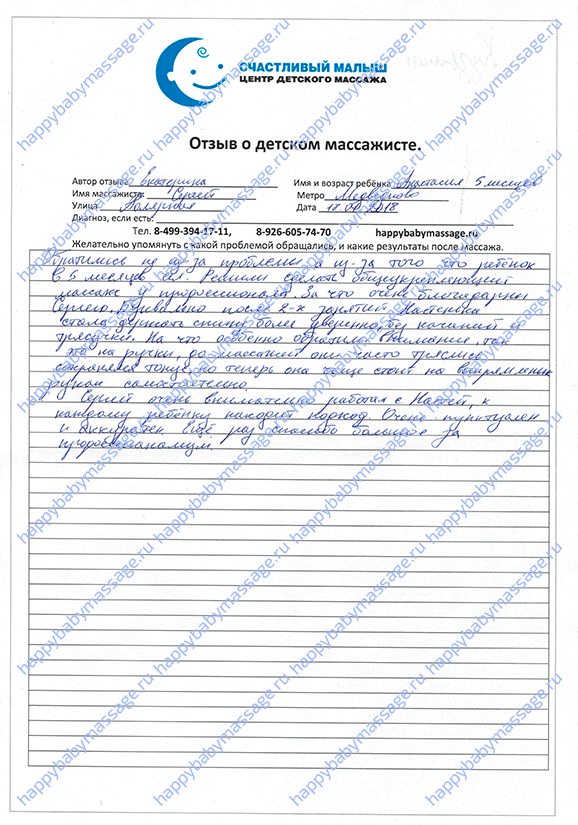 СЧАСТЛИВЫЙ МАЛЫШ
ЦЕНТР ДЕТСКОГО МАССАЖА
Отзыв о детском массажисте.
Автор отзыва Екатерина Имя и возраст ребёнка Анастасия 5 месяцев
Имя массажиста: Сергей Метро Медведково
Улица Полярная Дата 18 2018
Диагноз, если есть:
Тел. 8-499-394-17-11, 8-926-605-74-70 happybabymassage.ru
Желательно упомянуть с какой проблемой обращались, и какие результаты после массажа.
обратились не из-за проблемы, а из-за того что ребёнок
в 5 месяцев Решили сделать общеукрепляющий
массаж у профессионала. За что очень благодарны
Сергею. Буквально после 2-х занятий Настенька
стала держать спинку более уверенно, без качаний и
трясучки. На что особенно обратили внимание, так
это на ручки, до массажей они часто тряслись
сохранялся тонус, но теперь она чаще стоит на выпрямленных
руках самостоятельно.
Сергей очень внимательно работал с Настей, к
каждому ребёнку находит подход. Очень пунктуален
и аккуратен. Ещё раз спасибо большое за
профессионализм.
happybabymassage.ru